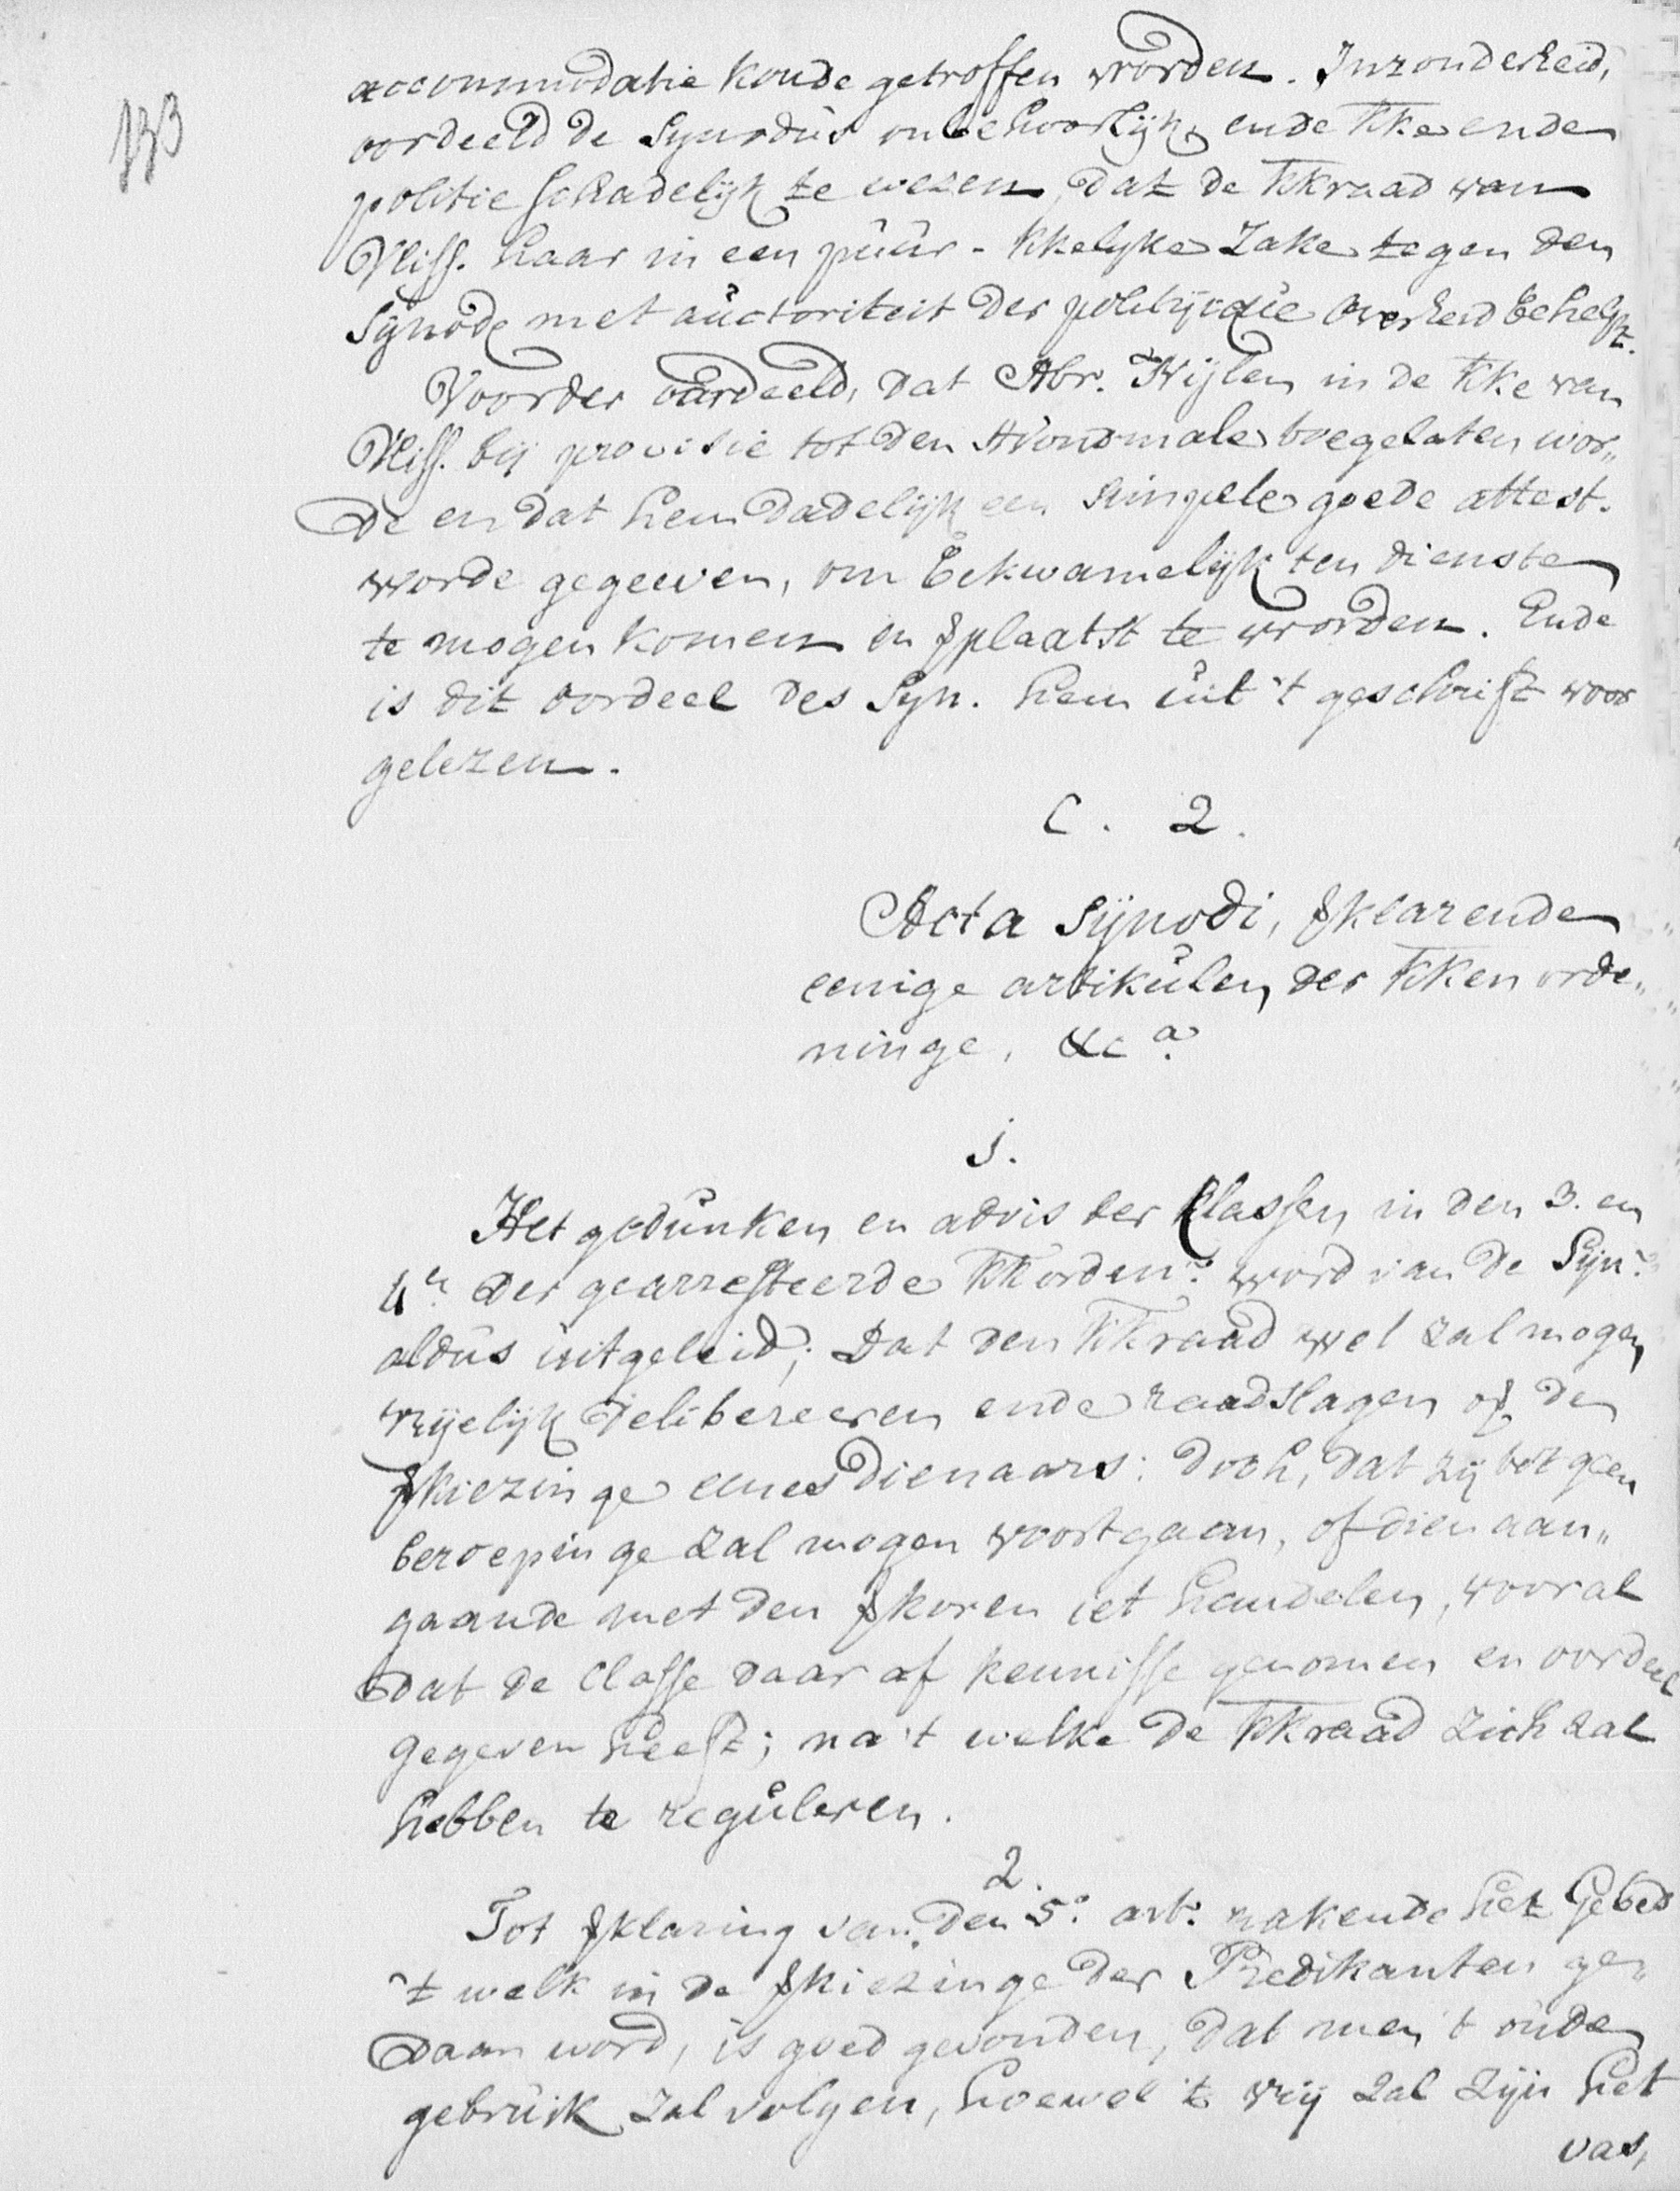 133
accommodatie konde getroffen worden. Inzonderheid,
oordeeld de Synodus onbehoorlijk, ende kke ende
politie schadelijk te wezen, dat de kkraad van
Vliss. haar in een puur-kkelyke zake tegen den
Synode met auctoriteit der politijque overheid behelpt.
Voorder oordeeld, dat Abr. Wijlen in de kke van
Vliss. bij provisie tot den Avondmale toegelaten wor„
de en dat hem dadelijk een simpele goede attest.
worde gegeeven, om bekwamelijk ten dienste
te mogen komen en ꝟplaatst te worden. Ende
is dit oordeel des Syn. hem uit 't geschrift voor
gelezen.
C. 2.
Acta Sijnodi, ꝟklarende
eenige artikulen der kken orde„
ninge, &c.a
1.
Het gedunken en advis der Classen, in den 3. en
4e der gearresteerde kkorden: word van de Syn:
aldus uitgeleid; Dat den kkraad wel zal mogen
vrijelijk delibereeren ende raadslagen op den
ꝟkiezinge eenes dienaars: doch, dat zij tot geen
beroepinge zal mogen voortgaan, of dien aan„
gaande met den ꝟkoren iet handelen, vooral
dat de Classe daar af kennisse genomen en oordeel
gegeven heeft; na 't welke de kkraad zich zal
hebben te reguleren.
2.
Tot ꝟklaring van den 5. art. rakende het Gebed
't welk in de ꝟkiezinge der Predikanten ge„
daan word, is goed gevonden, dat men 't oude
gebruik zal volgen, hoewel 't vrij zal zijn het
vas,